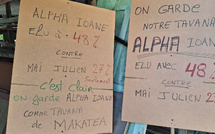 ALPHA IOANE
ELU à 48 %
CONTRE
MAI JULIEN 27 %
seulement
C'est clair
on garde ALPHA IOANE
comme TAVANA
DE MAKATEA
ON GARDE
NOTRE TAVANA
ALPHA IOANE
ELU AVEC 48
CONTRE
MAI JULIEN 27